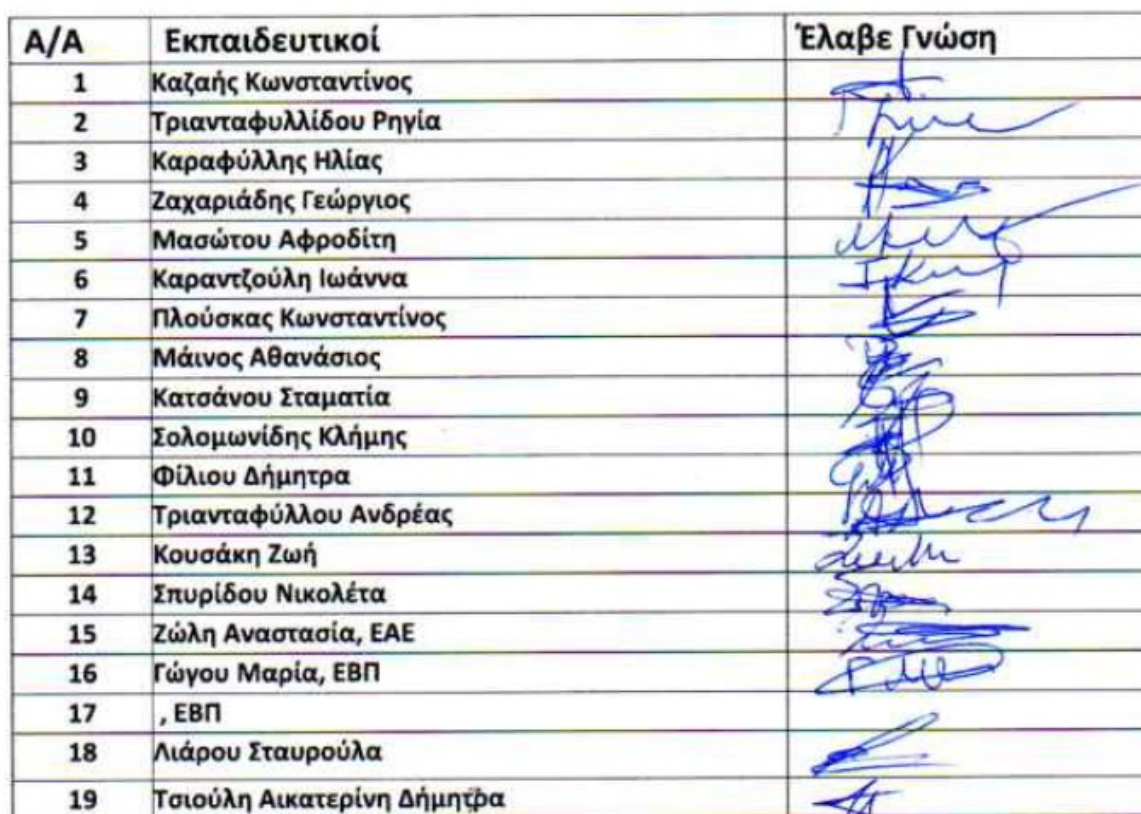 Α/Α Εκπαιδευτικοί Έλαβε Γνώση
1 Καζαής Κωνσταντίνος
2 Τριανταφυλλίδου Ρηγία
3 Καραφύλλης Ηλίας
4 Ζαχαριάδης Γεώργιος
5 Μασώτου Αφροδίτη
6 Καραντζούλη Ιωάννα
7 Πλούσκας Κωνσταντίνος
8 Μάινος Αθανάσιος
9 Κατσάνου Σταματία
10 Σολομωνίδης Κλήμης
11 Φίλιου Δήμητρα
12 Τριανταφύλλου Ανδρέας
13 Κουσάκη Ζωή
14 Σπυρίδου Νικολέτα
15 Ζώλη Αναστασία, ΕΑΕ
16 Γώγου Μαρία, ΕΒΠ
17 , ΕΒΠ
18 Λιάρου Σταυρούλα
19 Τσιούλη Αικατερίνη Δήμητρα